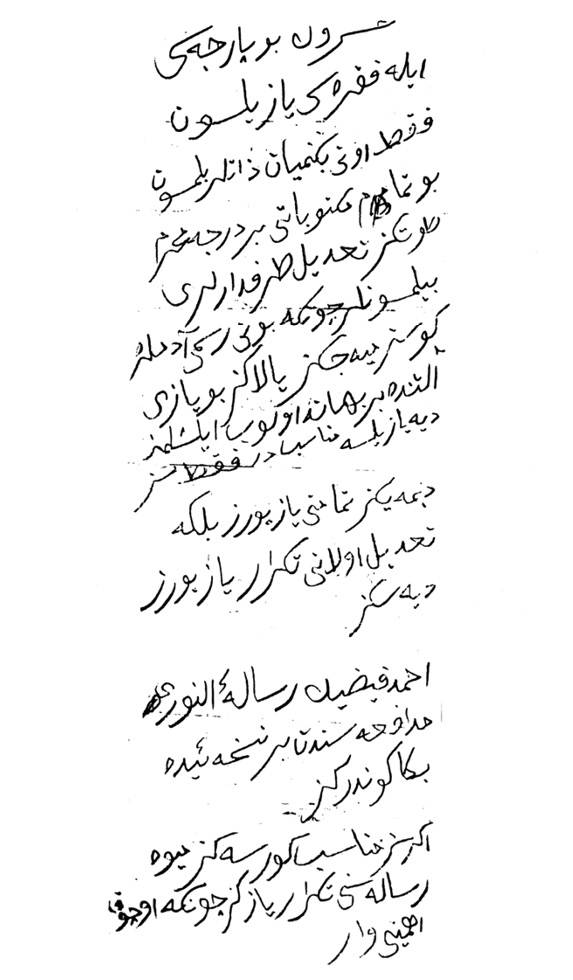 خسرون بو پارچه‌کی
ایله فقره‌کی یازیلسون
فقط اونی بکنمیان ذاتلر بیلمسون
بو تمام مکتوباتی بر درجه محرم
طوتکز تعدیل طرفدارلری
بیلمسونلر چونکه بونی رسمی آدمله
کوستریه‌جکز یالاکز بو یازی
آلتنده بر بهانه اوکوب ایلیشیلمز
دیه یازیلسه مناسبدر فقط سز
دیمه‌یکز تمامنی یازیورز بلکه
تعدیل اولانی تکرار یازیورز
دیه‌سکز
احمد فیضینك رسالة النوری
مدافعه سندن بر نسخه ئیده
بکا کوندرکز
اکر سز مناسب کورسه‌کز میوه
رساله‌سنی تکرار یازکز چونکه او چوق
اهمیتی وار